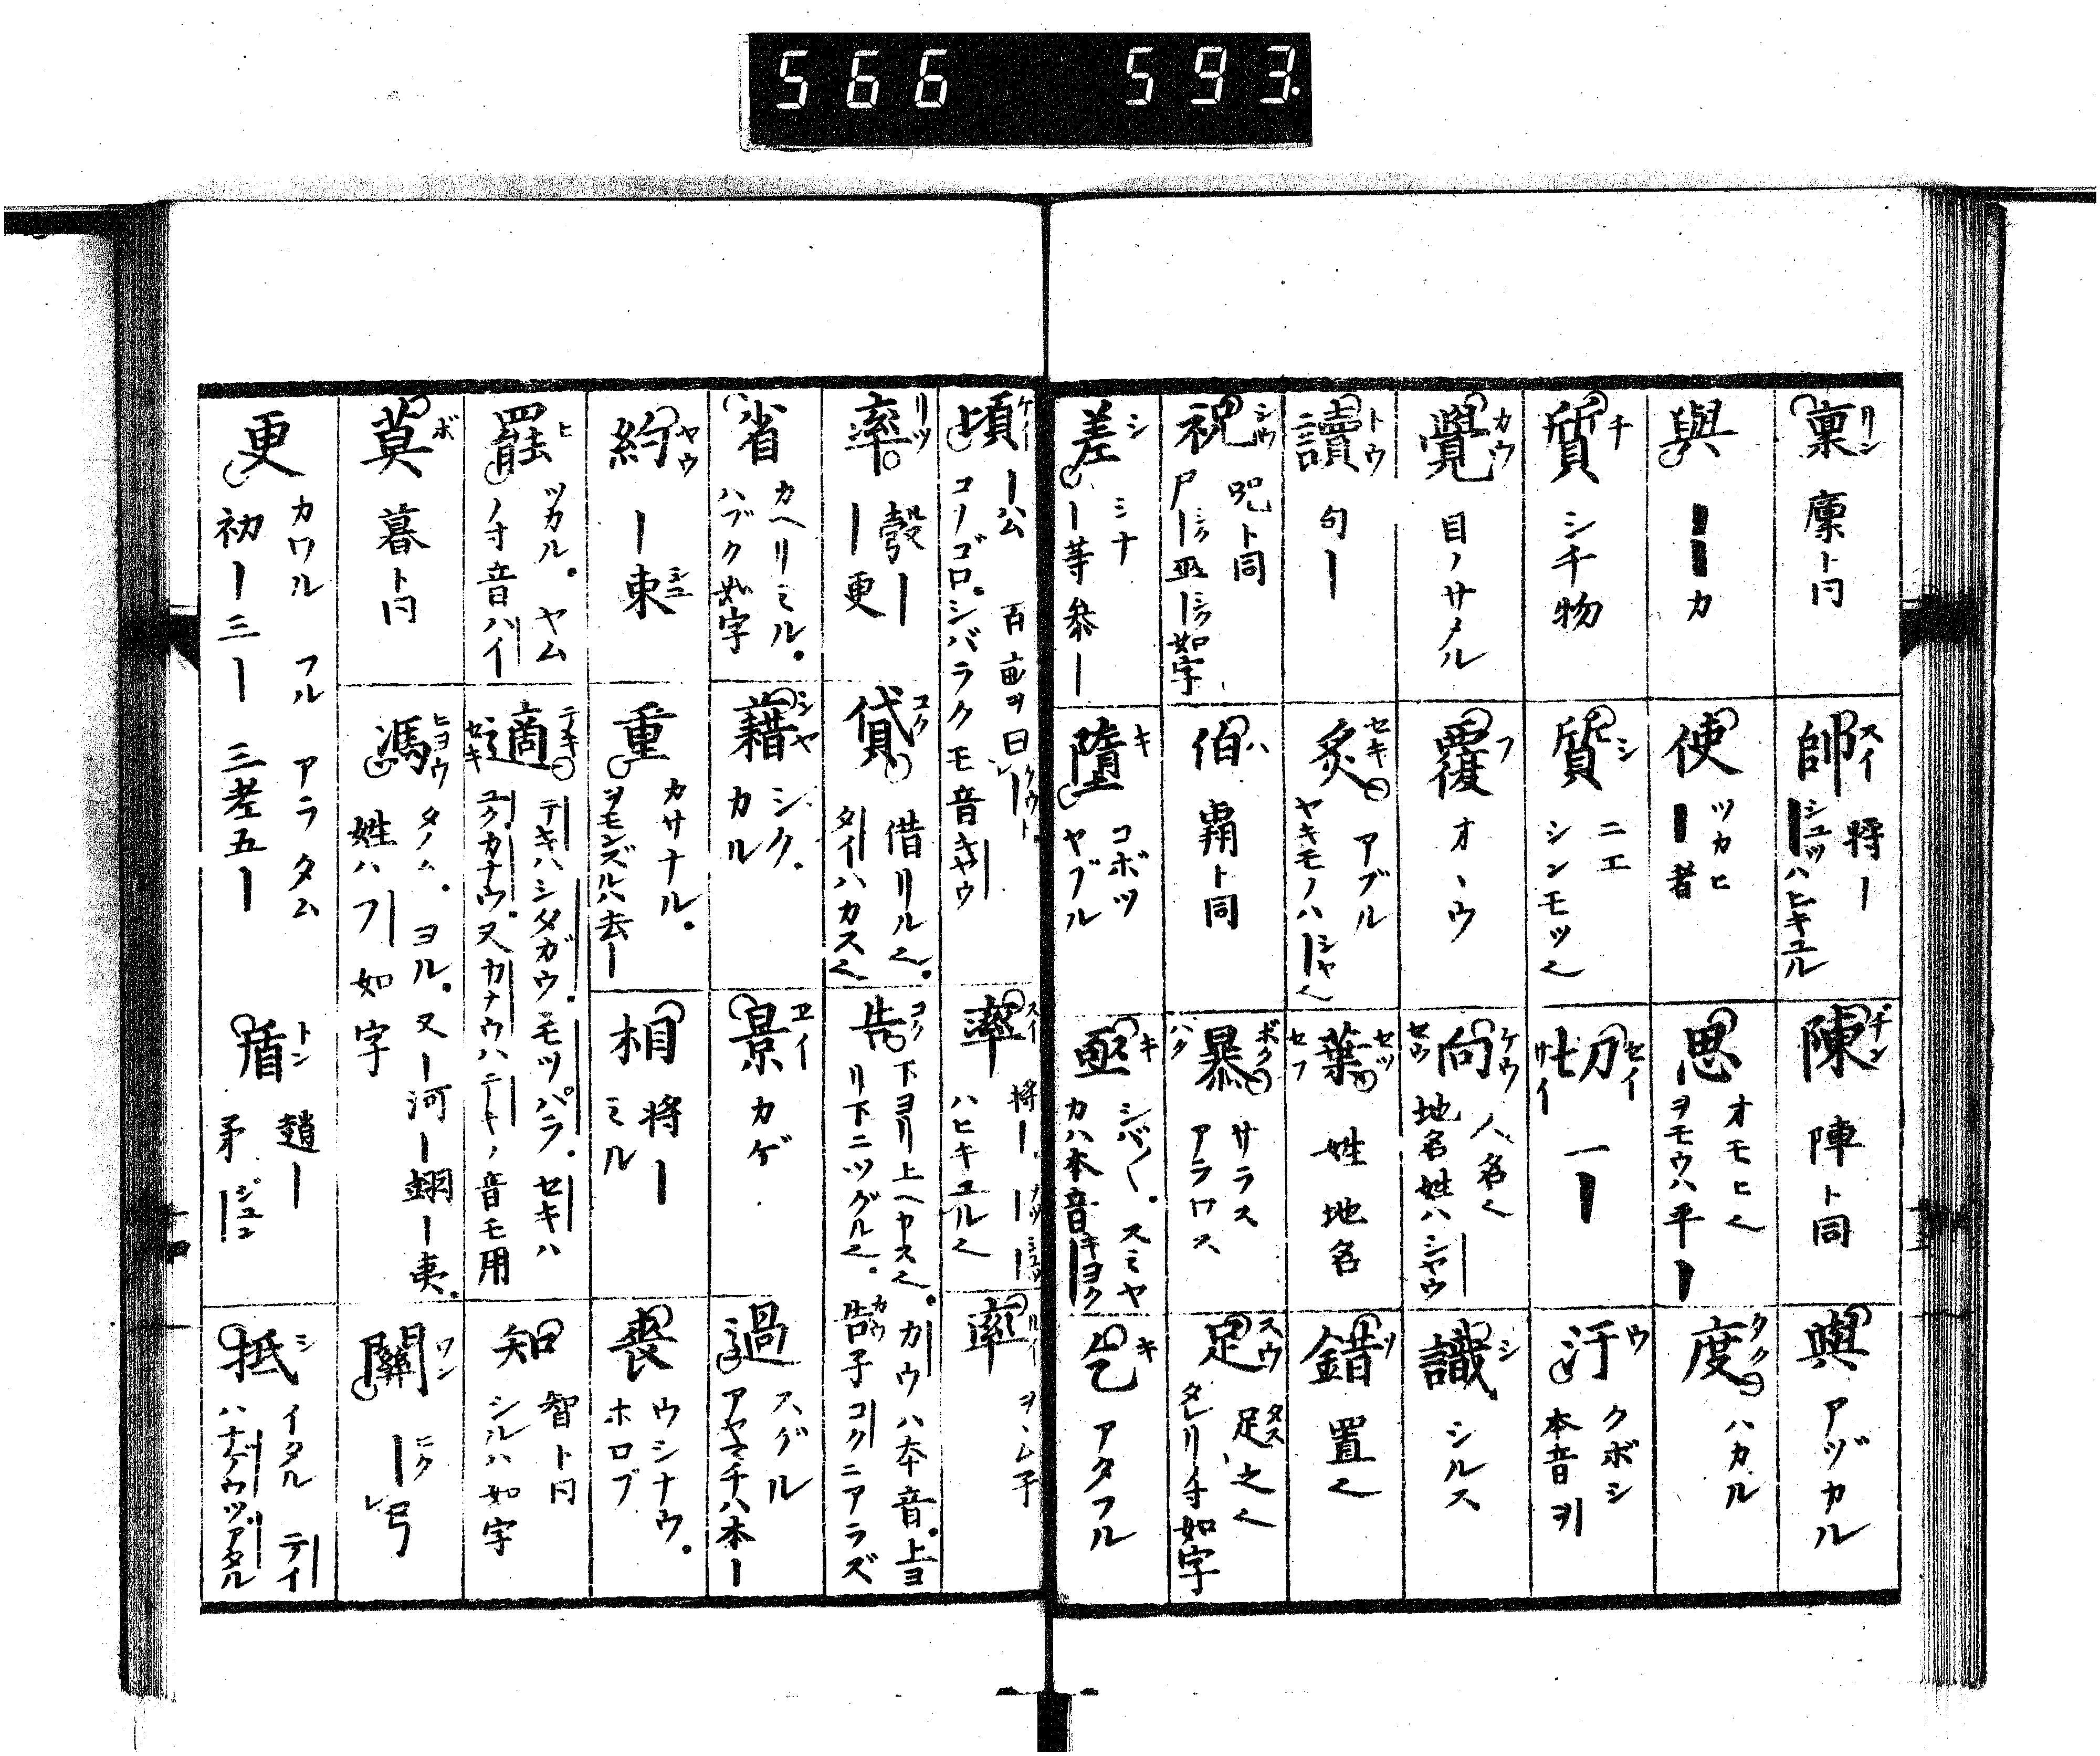 566 593.
稟 リン 廩ト同
帥 スイ 将ー
シユツハヒキユル
陳 チン 陣ト同
與 アヅカル
與 ーーカ
使 ツカヒ
ー者
思 オモヒ也
ヲモウハ平ー
度 ハカル
質 チ シチ物
質 シ ニエ
シンモツ也
切 セイ サイ 一ー
汙 ウ クボシ
本音ヲ
覺 カウ 目ノサメル
覆 フ オヽウ
向 ケウ 人名也
地名姓ハシヤウ
識 シ シルス
讀 トウ 句ー
炙 セキ アブル
ヤキモノハーシヤ也
葉 セツ セフ 姓 地名
錯 ソ 置也
祝 シウ 呪ト同
尸ー巫ー如字
伯 ハ 覇ト同
暴 ボク ハク サラス
アラワス
足 スウ 足之也
タレリノ寸如字
差 シ シナ
ー等 参ー
墮 キ コボツ
ヤブル
亟 キ シバ〱。スミヤ
カハ本音キヨク
乞 キ アタフル
頃 ケイ ー公 百畝ヲ曰ー
コノゴロ。シバラクモ音キヤウ
率 スイ 将ー
ハヒキユル也
率 ルイ
率 リツ 彀ー
ー更
貸 コク 借リル也。
タイハカス也
告 コク 下ヨリ上ヘヤス也。カウハ本音。上ヨ
リ下ニツグル也。告子コクニアラズ
省 カヘリミル。
ハブク如字
藉 シヤ シク。
カル
景 エイ カゲ
過 スグル
アヤマチハ本ー
約 ヤウ ー束
重 カサナル。
ヲモンズルハ去ー
相 将ー
ミル
喪 ウシナウ。
ホロブ
罷 ヒ ツカル。ヤム
ノ寸音ハイ
適 テキ セキ テキハシタガウ。モツパラ。セキハ
ユク。カナウ。又カナウハテキノ音モ用
知 智ト同
シルハ如字
莫 ボ 暮ト同
馮 ヒヨウ タノム。ヨル。又ー河ー翊ー夷。
姓ハフ 如字
關 ワン ー弓
更 カワル フル アラタム
初ー三ー 三老五ー
盾 トン 趙ー
矛ージユン
抵 シ イタル テイ
ハナゲウツ。アタル